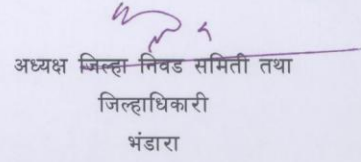 अध्यक्ष जिल्हा निवड समिती तथा
जिल्हाधिकारी
भंडारा